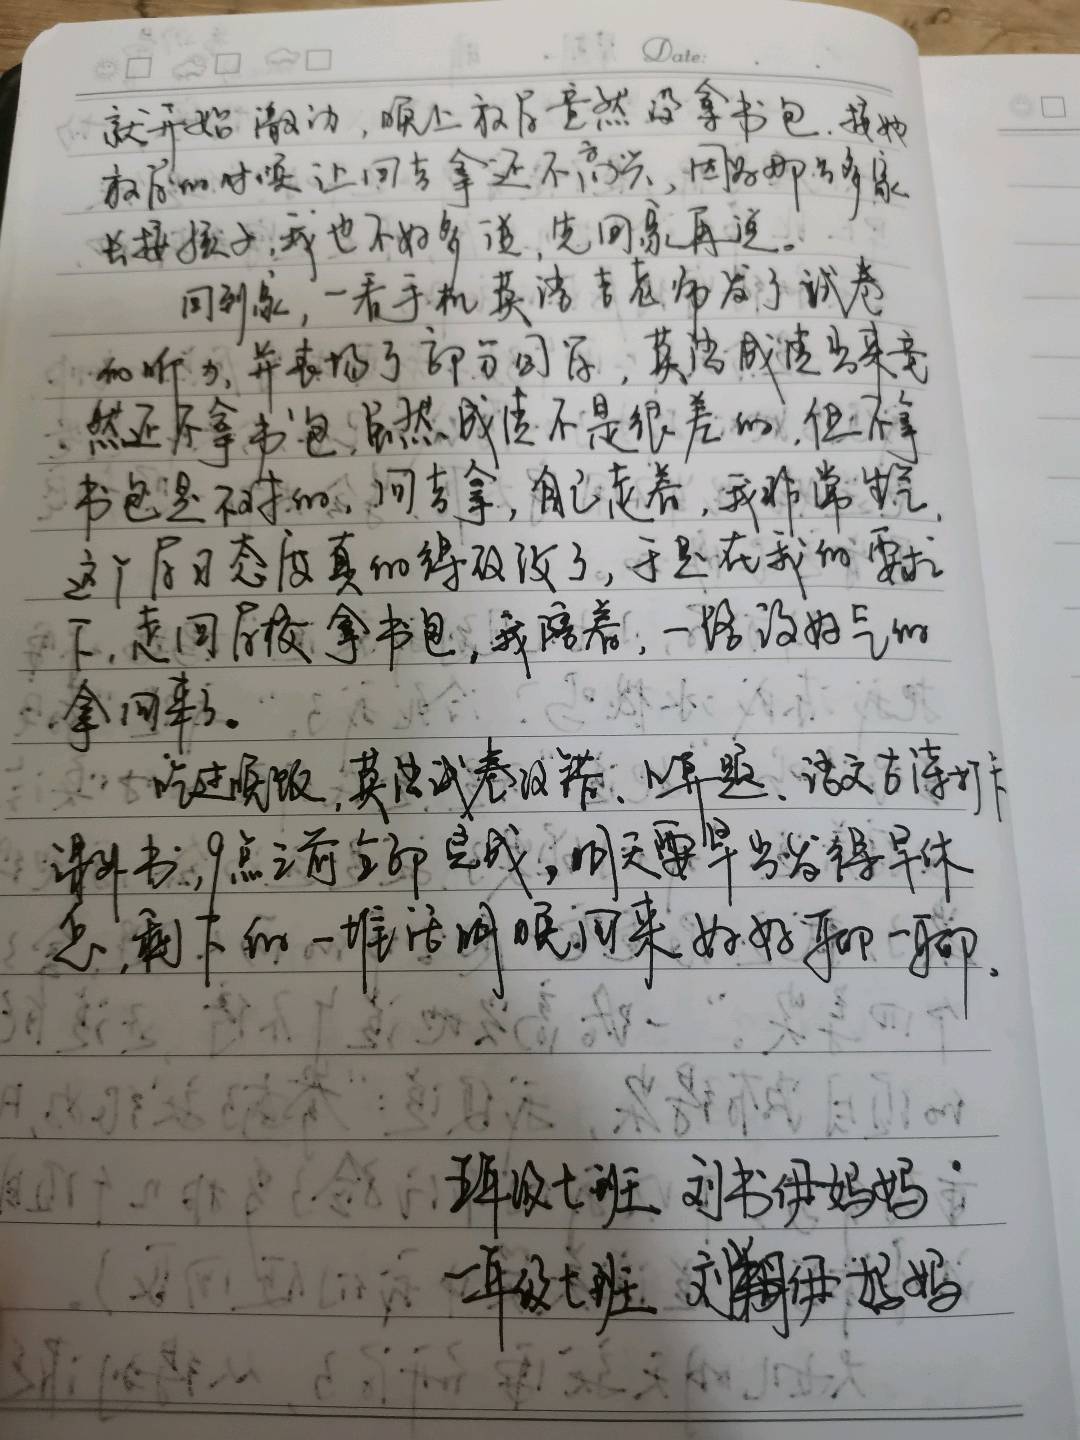 Date:
就开始激动，晚上放学竟然没拿书包，接她
放学的时候让回去拿还不高兴，因为那么多家
长接孩子，我也不好多说，先回家再说。
回到家，一看手机英语老师发了试卷
的听力，并表扬了部分同学，英语成绩出来竟
然还不拿书包，虽然成绩不是很差的，但不拿
书包是不对的，回去拿，自己走着，我非常生气，
这个学习态度真的得改改了，于是在我的要求
下，走回学校拿书包，我陪着，一路没好气的
拿回来了。
吃过晚饭，英语试卷改错、口算题、语文古诗打卡
课外书，9点之前全部完成，明天要早出发得早休
息，剩下的一堆话明晚回来好好聊一聊，
五年级七班 刘书伊妈妈
一年级七班 刘翔伊妈妈